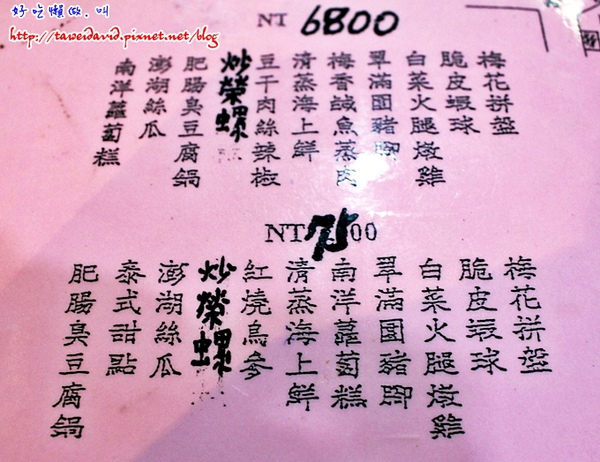 好吃懶做.叫
http://taweidavid.pixnet.net/blog
NT 6800
梅花拼盤
脆皮蝦球
白菜火腿燉雞
罩滿圓豬腳
梅香鹹魚蒸肉
清蒸海上鮮
豆干肉絲辣椒
炒榮螺
肥腸臭豆腐鍋
澎湖絲瓜
南洋蘿蔔糕
NT 7500
梅花拼盤
脆皮蝦球
白菜火腿燉雞
罩滿圓豬腳
南洋蘿蔔糕
清蒸海上鮮
紅燒烏參
炒榮螺
澎湖絲瓜
泰式甜點
肥腸臭豆腐鍋